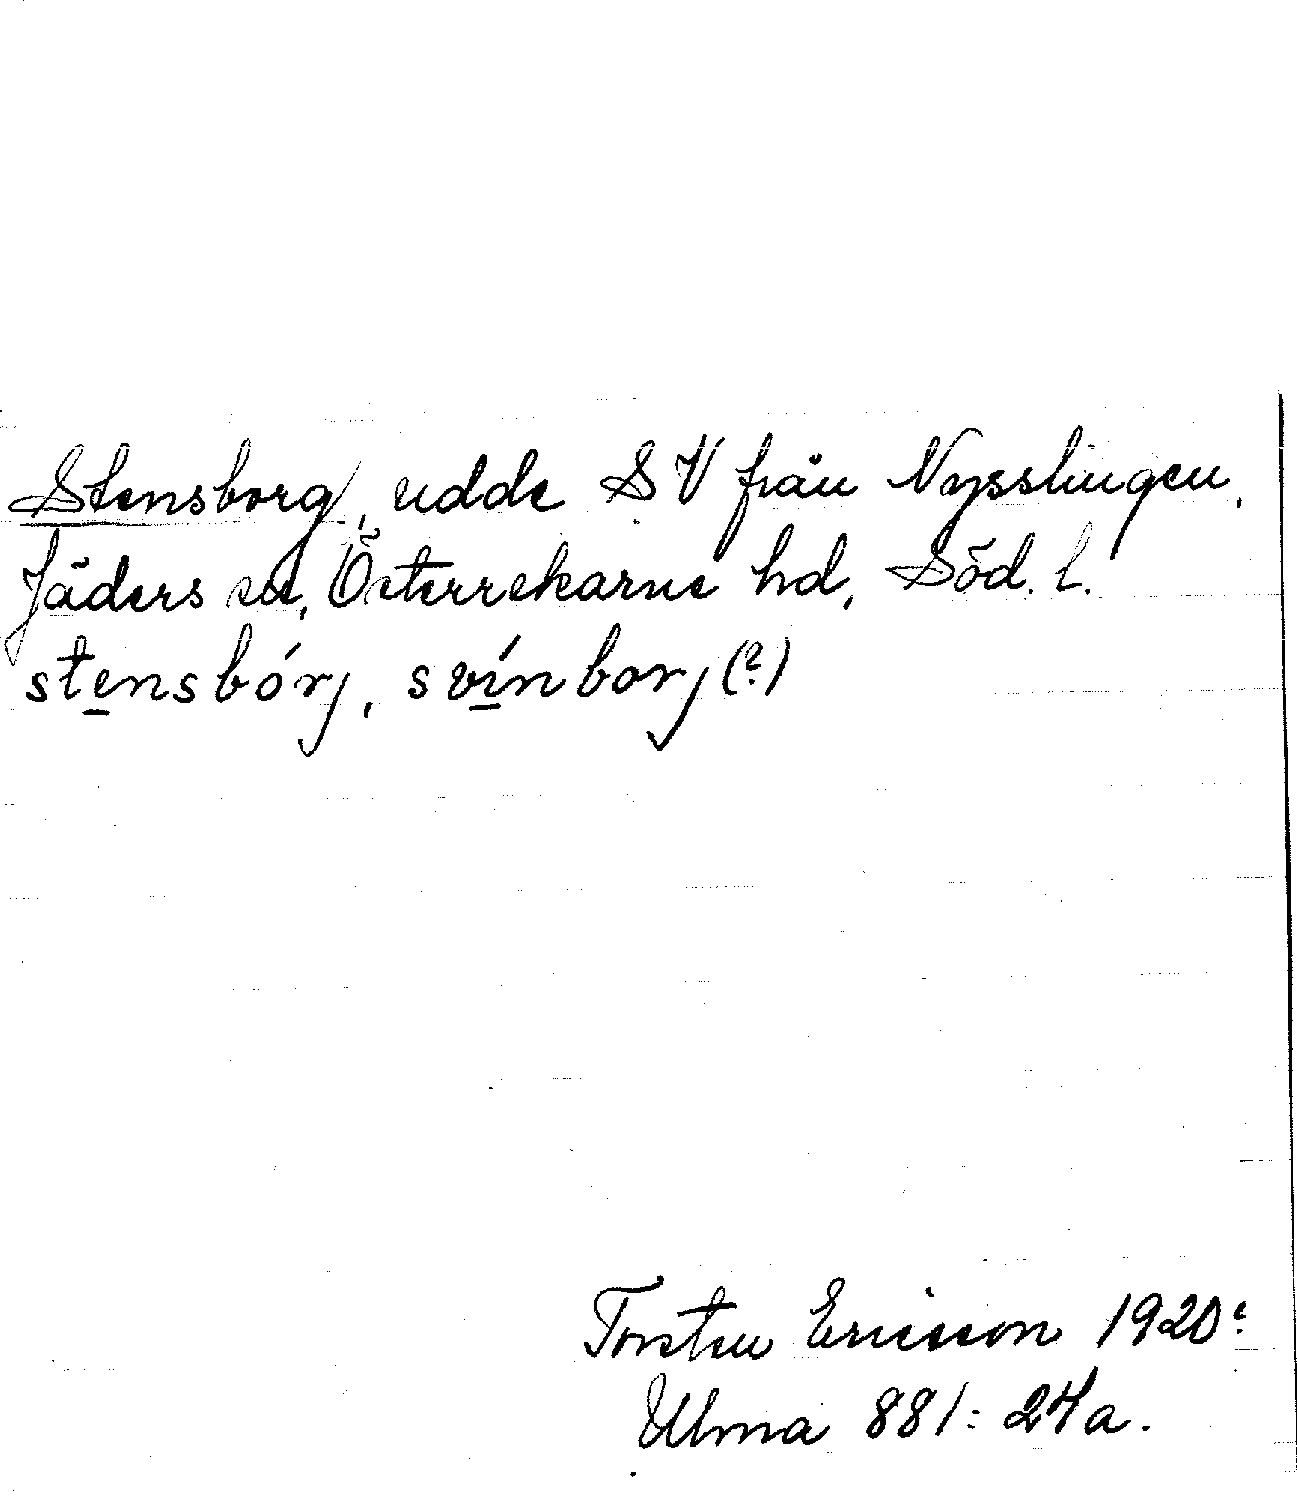 Stensborg, udde SV från Nysslingen,
Jäders sn, Österrekarne hd, Söd. l.
stensbórj, svínborj (?)
Torsten Ericsson 1920:
Ulma 881: 24a.